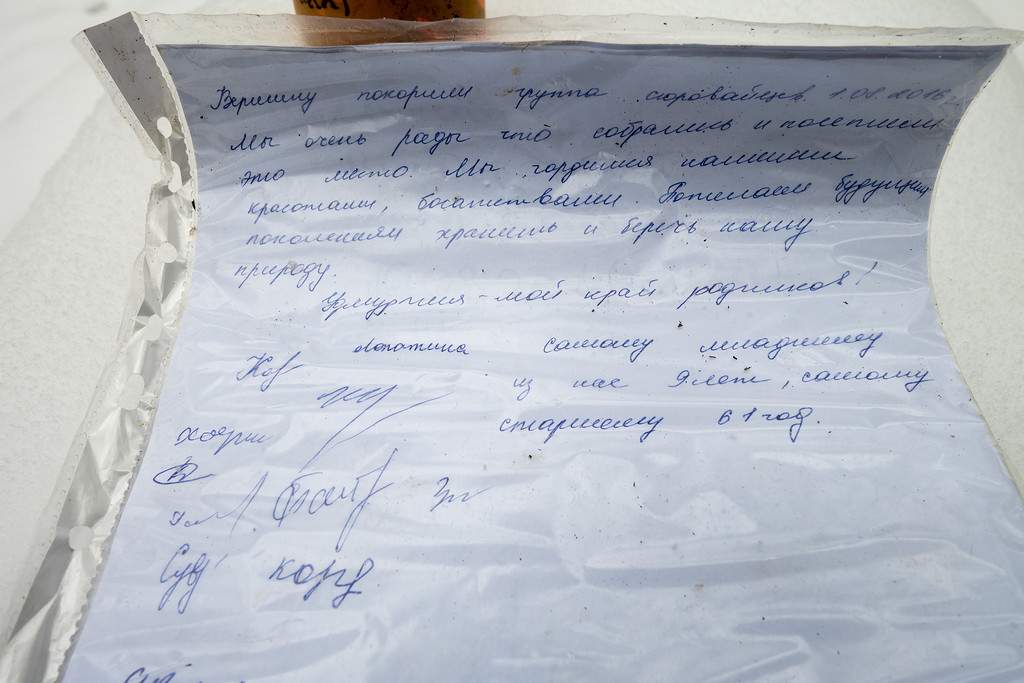 Вершину покорили группа 1.08.2016г.
Мы очень рады что собрались и посетили
это место. Мы гордимся нашими
красотами, богатствами. Пожелаем будущим
поколениям хранить и беречь нашу
природу.
Удмуртия - мой край родников!
Лопатина самому младшему
из нас 9 лет, самому
старшему 61 год.